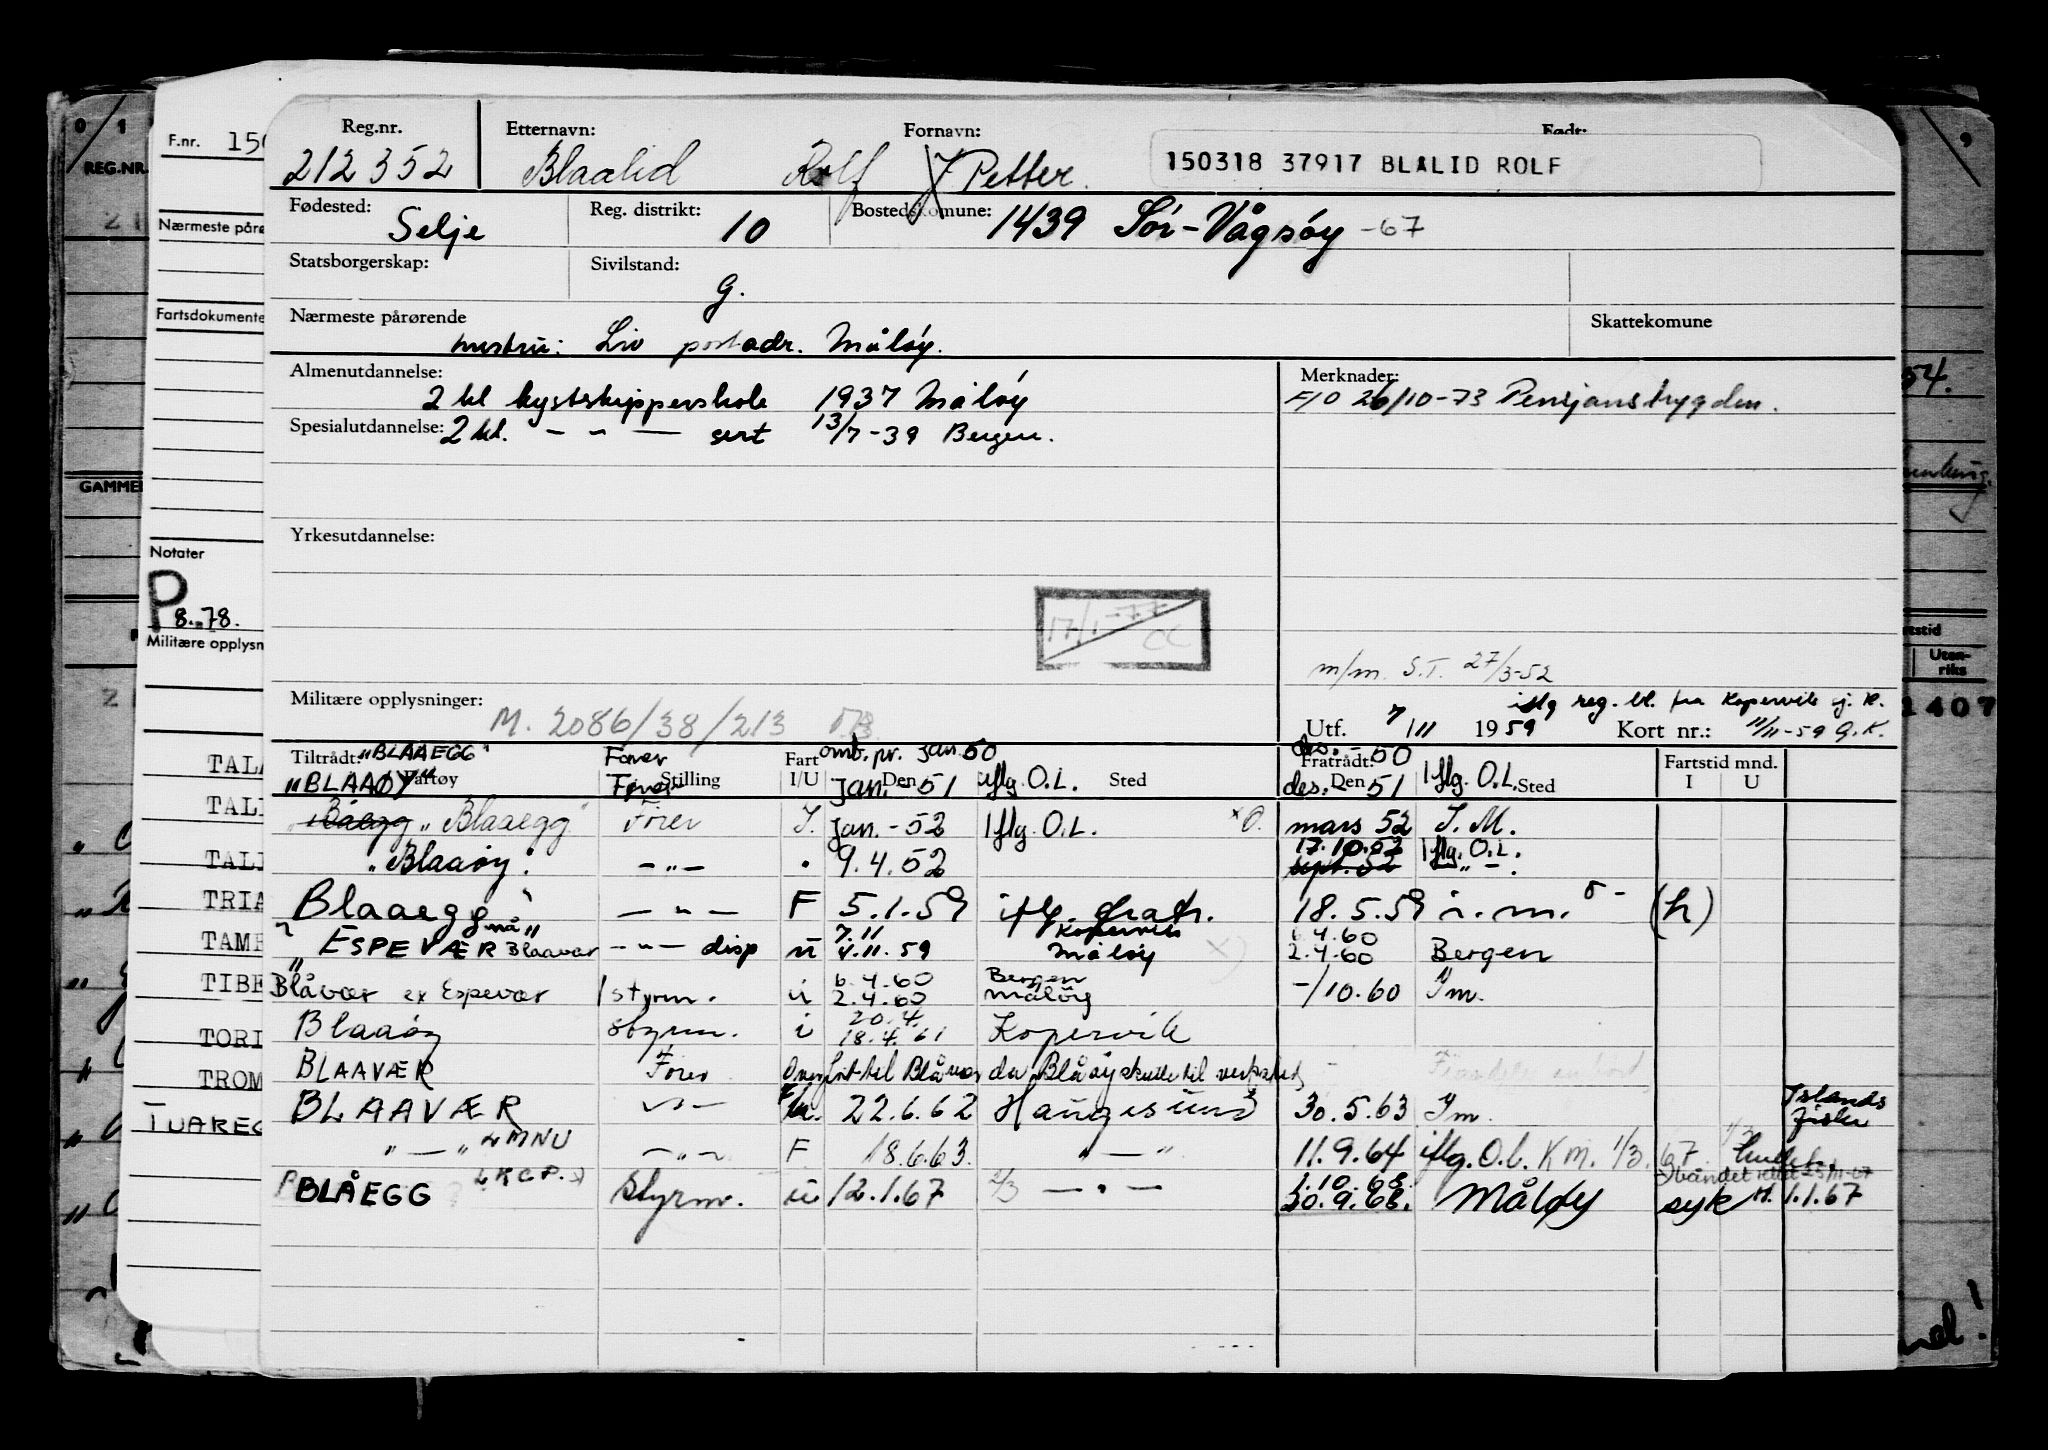 F.nr. 150
REG.NR.
Nærmeste påre
Fartsdokumente
GAMMEL
Notater
P
8.-78.
Militære opplysn
TALA
TALI
TALI
TRIA
TAMP
TIBE
TORI
TROM
TUAREG
54.
Uten-
riks
1407
Reg.nr. Etternavn: Fornavn: Født:
212352 Blaalid Rolf J Petter. 150318 37917 BLALID ROLF
Fødested: Selje Reg. distrikt: 10 Bostedskomune: 1439 Sør-Vågsøy -67
Statsborgerskap: Sivilstand: g.
Nærmeste pårørende Skattekomune
hustru: Liv postadr. Måløy.
Almenutdannelse: Merknader:
2 kl kystskipperskole 1937 Måløy F/O 26/10-73 Pensjonstrygden.
Spesialutdannelse: 2 kl. - " - sert 13/7-39 Bergen.
Yrkesutdannelse:
17/1-77
CC
m/m. S.T. 27/3-52
Militære opplysninger: M. 2086/38/213
iflg reg. bl. fra Kopervik sj. k.
Utf. 7/11 1959 Kort nr.: 11/11-59 G.K.
Tiltrådt: "BLAAEGG" Fører Fart omb. pr. jan. 50 des. - 50 Fratrådt: Fartstid mnd.
"BLAAØY" Fartøy Fører Stilling I/U jan. Den 51 iflg. O.L. Sted des. Den 51 iflg. O.L. Sted I U
Blåegg "Blaaegg" Fører I. jan. - 52 iflg. O.L. x O. mars 52 I. M.
"Blaaøy". - " - 9.4.52 17.10.52 iflg. O.L.
sept. 52 - " -
Blaaegg nå - " - F 5.1.59 iflg. 18.5.59 i. m. (h)
" ESPEVÆR Blaavær - " - disp u 7.11 4.11.59 Kopervik Måløy x) 6.4.60 2.4.60 Bergen
Blåvær ex Espevær 1 styrm. u 6.4.60 2.4.60 Bergen Måløy -/10.60 Im.
Blaaøy styrm. i 20.4. 18.4.61 Kopervik
BLAAVÆR Fører Overført til Blåvær da Blåøy skulle til verksted
BLAAVÆR - " - 22.6.62 Haugesund 30.5.63 Im. Islands fiske
" - " LMNU - " - F 18.6.63. " - " 11.9.64 iflg. O.L. KM. 1/3. 67.
BLÅEGG LKGP. Styrm. u 12.1.67 2/3 - " - 1.10.68. 30.9.68. Måløy syk M. 1.1.67